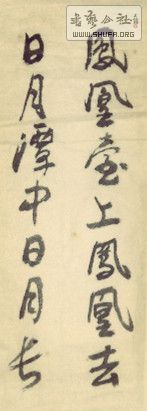 鳳凰臺上鳳凰去
日月潭中日月長
書藝公社
WWW.SHUFA.ORG